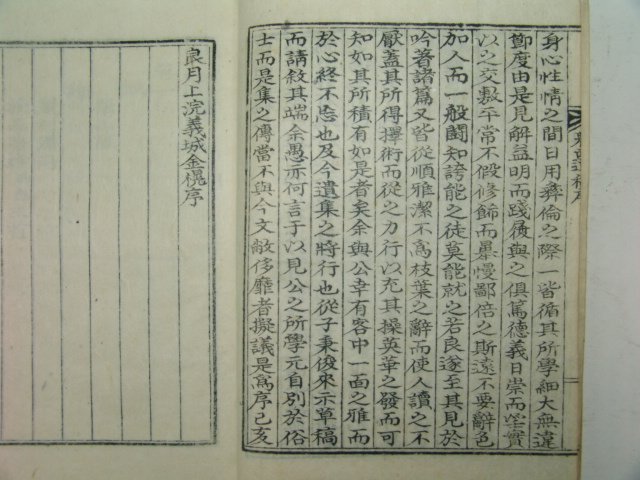 身心性情之間日用彛倫之際一皆循其所學細大無違
鄭度由是見解益明而踐履與之俱篤德義日崇而望實
以之交敷平常不假修飾而暴慢鄙倍之斯遠不要辭色
加人而一般闘知誇能之徒莫能就之若良遂至其見於
吟著諸篇又皆從順雅潔不爲枝葉之辭而使人讀之不
厭蓋其所得擇術而從之力行以充其操英華之發而可
知如其所積有如是者矣余與公幸有客中一面之雅而
於心終不忘也及今遺集之將行也從子秉俊來示草稿
而請敘其端余愚亦何言于以見公之所學元自別於俗
士而是集之傳當不與今文敝侈靡者擬議是爲序己亥
良月上浣義城金榥序